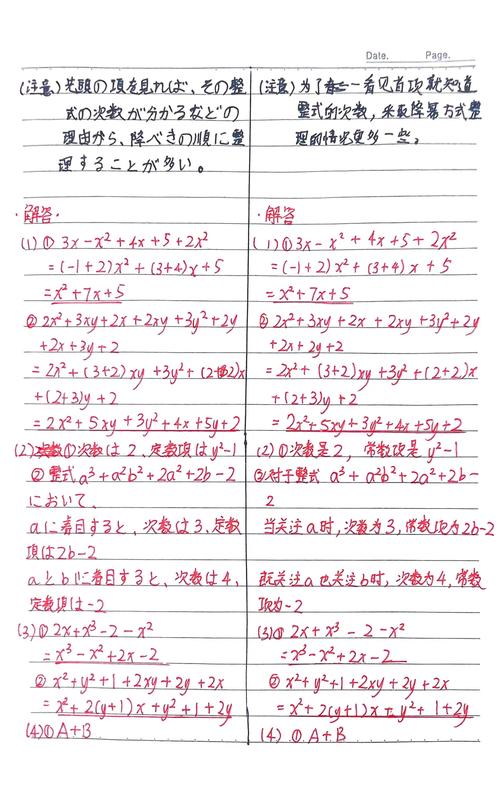 Date. Page.
(注意) 先頭の項を見れば、その整
式の次数が分かるなどの
理由から、降べきの順に整
理することが多い。
・解答・
(1) ① 3x-x²+4x+5+2x²
=(-1+2)x²+(3+4)x+5
=x²+7x+5
② 2x²+3xy+2x+2xy+3y²+2y
+2x+3y+2
=2x²+(3+2)xy+3y²+(2+2)x
+(2+3)y+2
=2x²+5xy+3y²+4x+5y+2
(2) ①次数は2, 定数項はy²-1
② 整式 a³+a²b²+2a²+2b-2
において、
aに着目すると、次数は3、定数
項は2b-2
aとbに着目すると、次数は4、
定数項は-2
(3) ① 2x+x³-2-x²
=x³-x²+2x-2
② x²+y²+1+2xy+2y+2x
=x²+2(y+1)x+y²+1+2y
(4) ① A+B
(注意) 为了一看见首项就知道
整式的次数, 采取降幂方式整
理的情况更多一些。
・解答・
(1) ① 3x-x²+4x+5+2x²
=(-1+2)x²+(3+4)x+5
=x²+7x+5
② 2x²+3xy+2x+2xy+3y²+2y
+2x+2y+2
=2x²+(3+2)xy+3y²+(2+2)x
+(2+3)y+2
=2x²+5xy+3y²+4x+5y+2
(2) ①次数是2, 常数项是y²-1
②对于整式 a³+a²b²+2a²+2b-
2
当关注a时, 次数为3, 常数项为2b-2
既关注a也关注b时, 次数为4, 常数
项为-2
(3) ① 2x+x³-2-x²
=x³-x²+2x-2
② x²+y²+1+2xy+2y+2x
=x²+2(y+1)x+y²+1+2y
(4) ① A+B